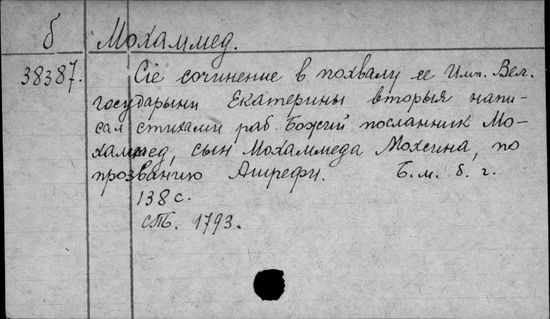 б Мохаммед.
38387. Сіе сочиненіе в похвалу ее Имп. Вел.
государыни Екатерины вторыя напи-
сал стихами раб Божій посланник Мо-
хаммед, сын Мохаммеда Мохсина, по
прозванію Ашрефи. Б. м. б. г.
138 с.
СПб. 1793.